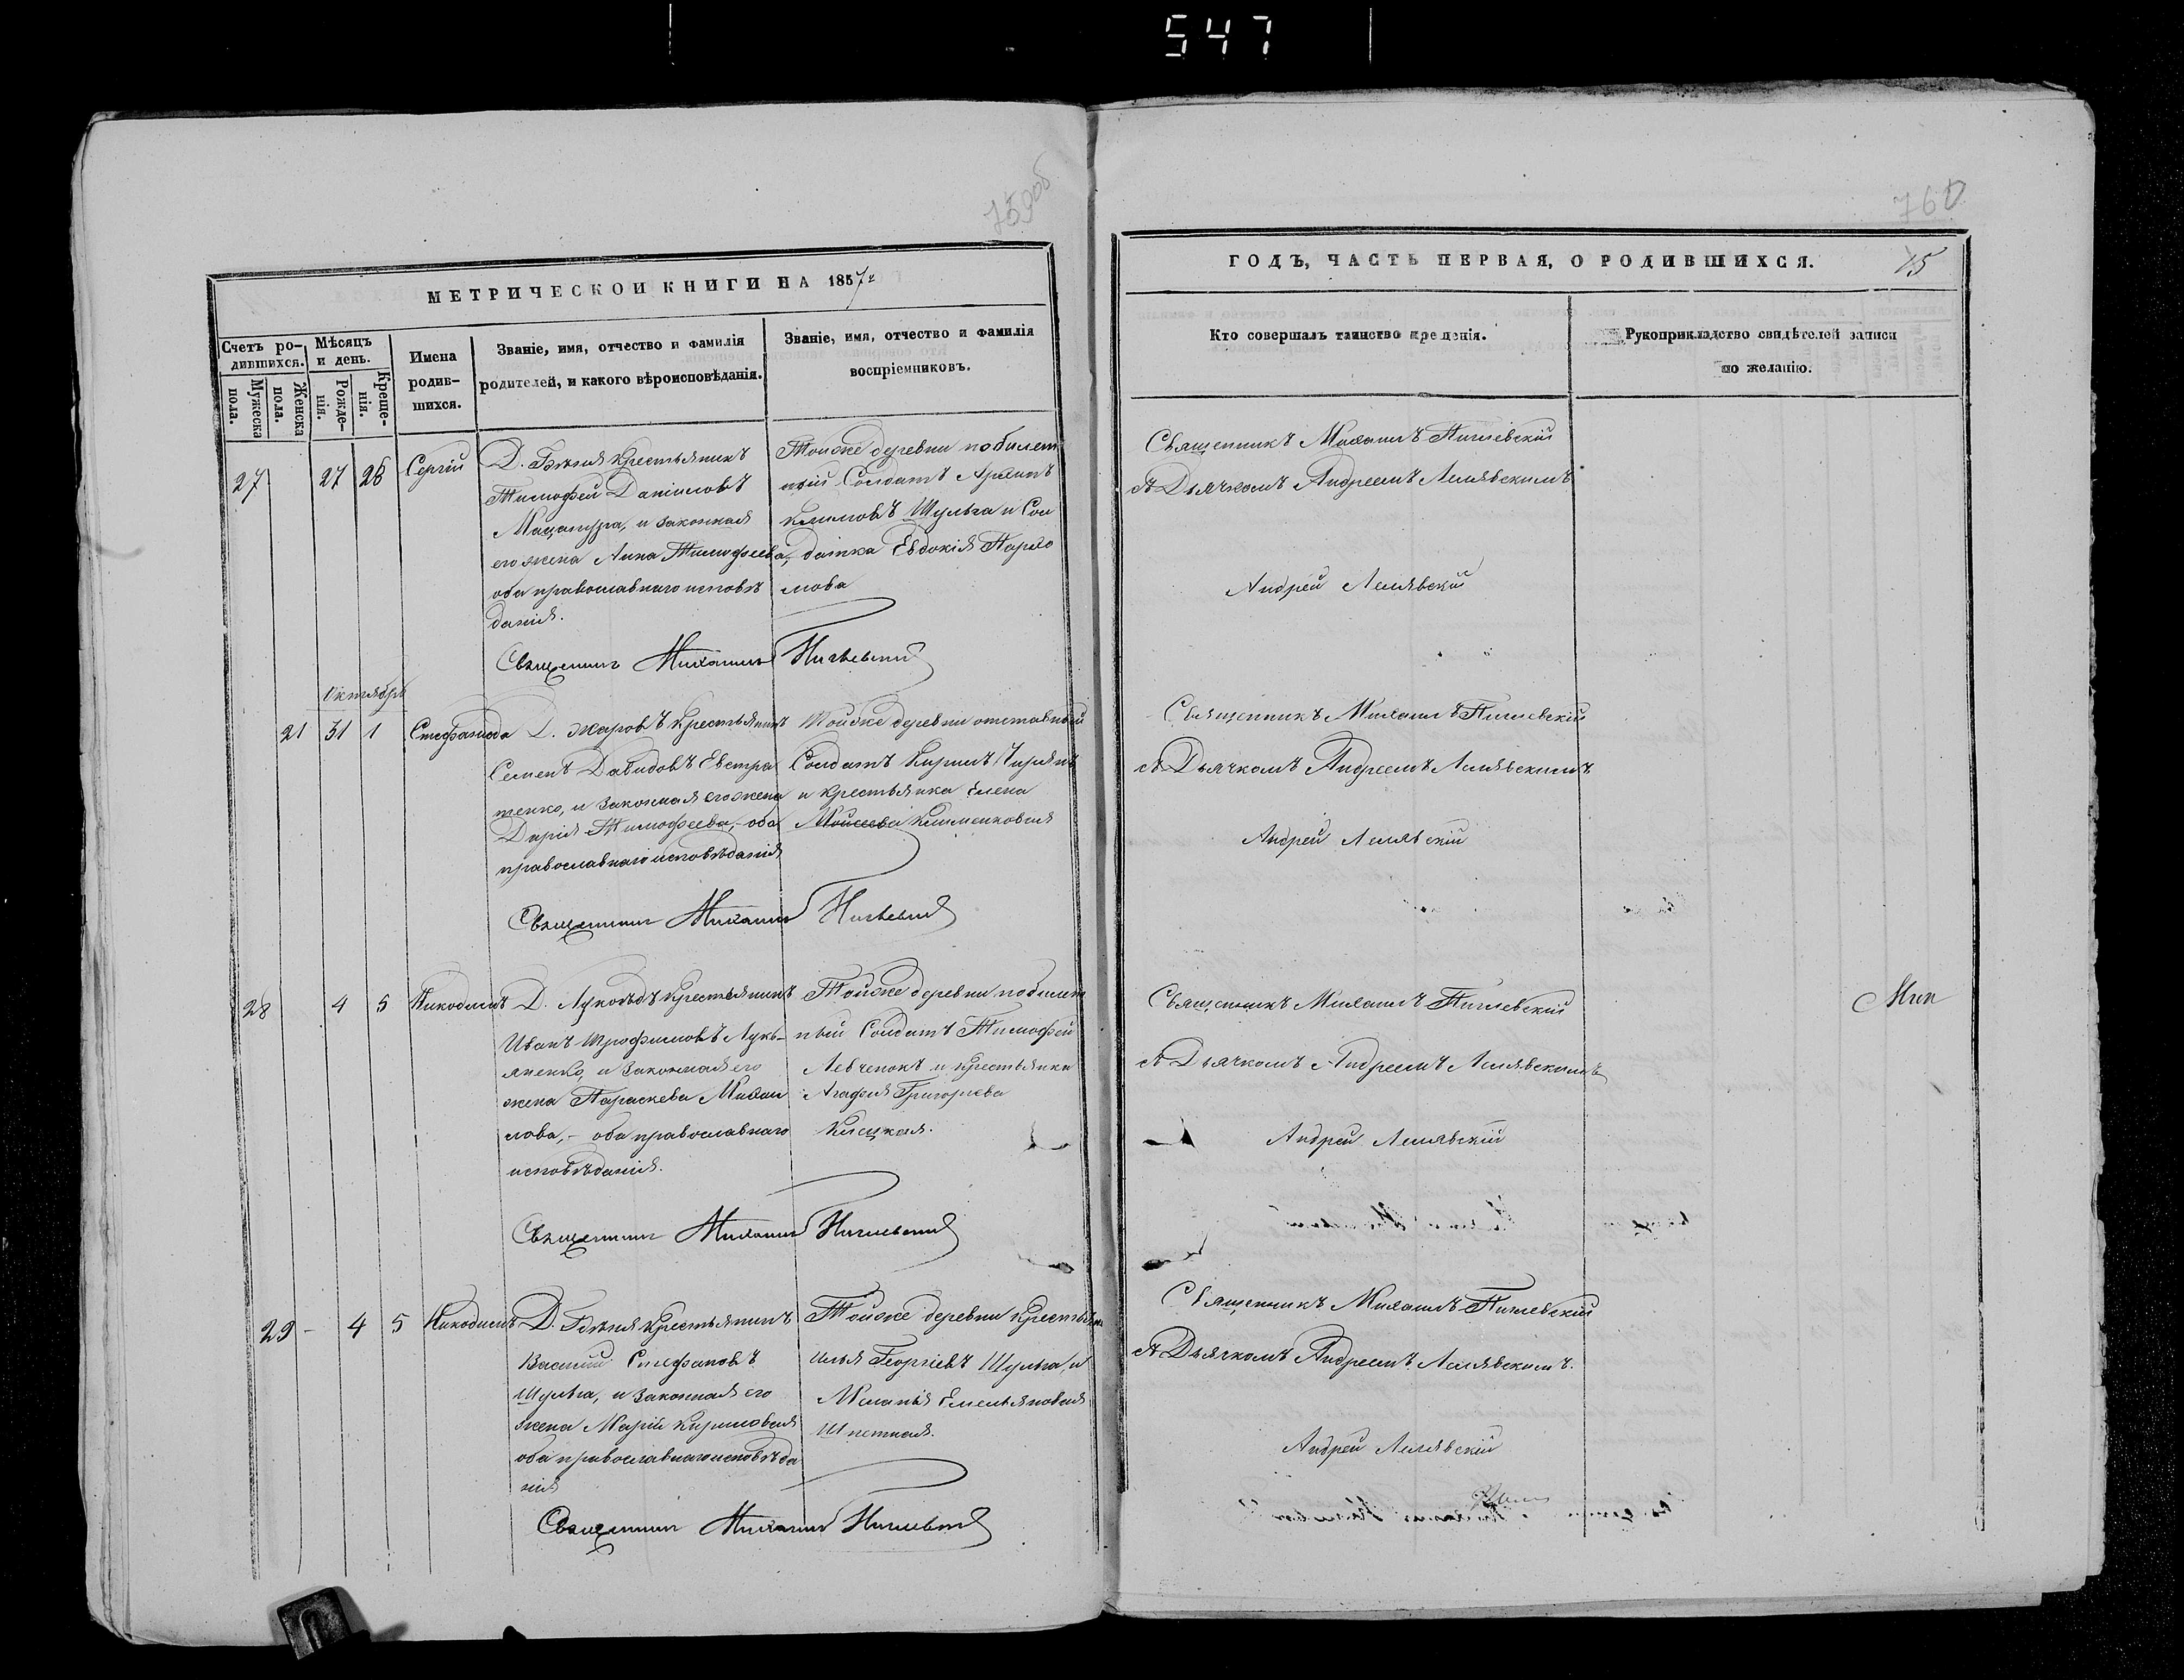 547
759об
МЕТРИЧЕСКОЙ КНИГИ НА 1857г
Счетъ родившихся.
Мужеска пола.
Женска пола.
Мѣсяцъ и день.
Рожденія.
Крещенія.
Имена родившихся.
Званіе, имя, отчество и фамилія
родителей, и какого вѣроисповѣданія.
Званіе, имя, отчество и фамилія
воспріемниковъ.
27 27 28 Сергій
Д. крестьянинъ
Тимофей Даниловъ
Мацапура, и законная
его жена Анна Тимофеева,
оба православнаго исповѣ
данія.
Тойже деревни побилет
ный Солдатъ Архипъ
Климовъ Шульга и Сол
датка Евдокія Пархо
мова
Священникъ Михаилъ
Октябрь
21 31 1 Стефанида
Д. Жаровъ крестьянинъ
Семенъ Давидовъ Евстра
тенко, и законная его жена
Дарія Тимофеева, оба
православнаго исповѣданія
Тойже деревни отставный
Солдатъ Кирилъ
и крестьянка Елена
Моисеева Клименковая
Священникъ Михаилъ
28 4 5 Никодимъ
Д. крестьянинъ
Иванъ Трофимовъ Лукь-
яненко, и законная его
жена Параскева Михаи
лова, - оба православнаго
исповѣданія.
Тойже деревни побилет
ный Солдатъ Тимофей
Левченокъ и крестьянка
Агафія Григорьева
Священникъ Михаилъ
29 - 4 5 Никодимъ
Д. крестьянинъ
Василій Стефановъ
Шульга, и законная его
жена Марія Кириловая
оба православнаго исповѣда
нія
Тойже деревни крестьян
Илья Георгіевъ Шульга, и
Меланія Емельяновая
Шпетная.
Священникъ Михаилъ
760
ГОДЪ, ЧАСТЬ ПЕРВАЯ, О РОДИВШИХСЯ.
15
Кто совершалъ таинство крещенія.
Рукоприкладство свидѣтелей записи
по желанію.
Священникъ Михаилъ
съ Дьячкомъ Андреемъ Лелявскимъ
Андрей Лелявскій
Священникъ Михаилъ
съ Дьячкомъ Андреемъ Лелявскимъ
Андрей Лелявскій
Священникъ Михаилъ
съ Дьячкомъ Андреемъ Лелявскимъ
Андрей Лелявскій
Священникъ Михаилъ
съ Дьячкомъ Андреемъ Лелявскимъ.
Андрей Лелявскій